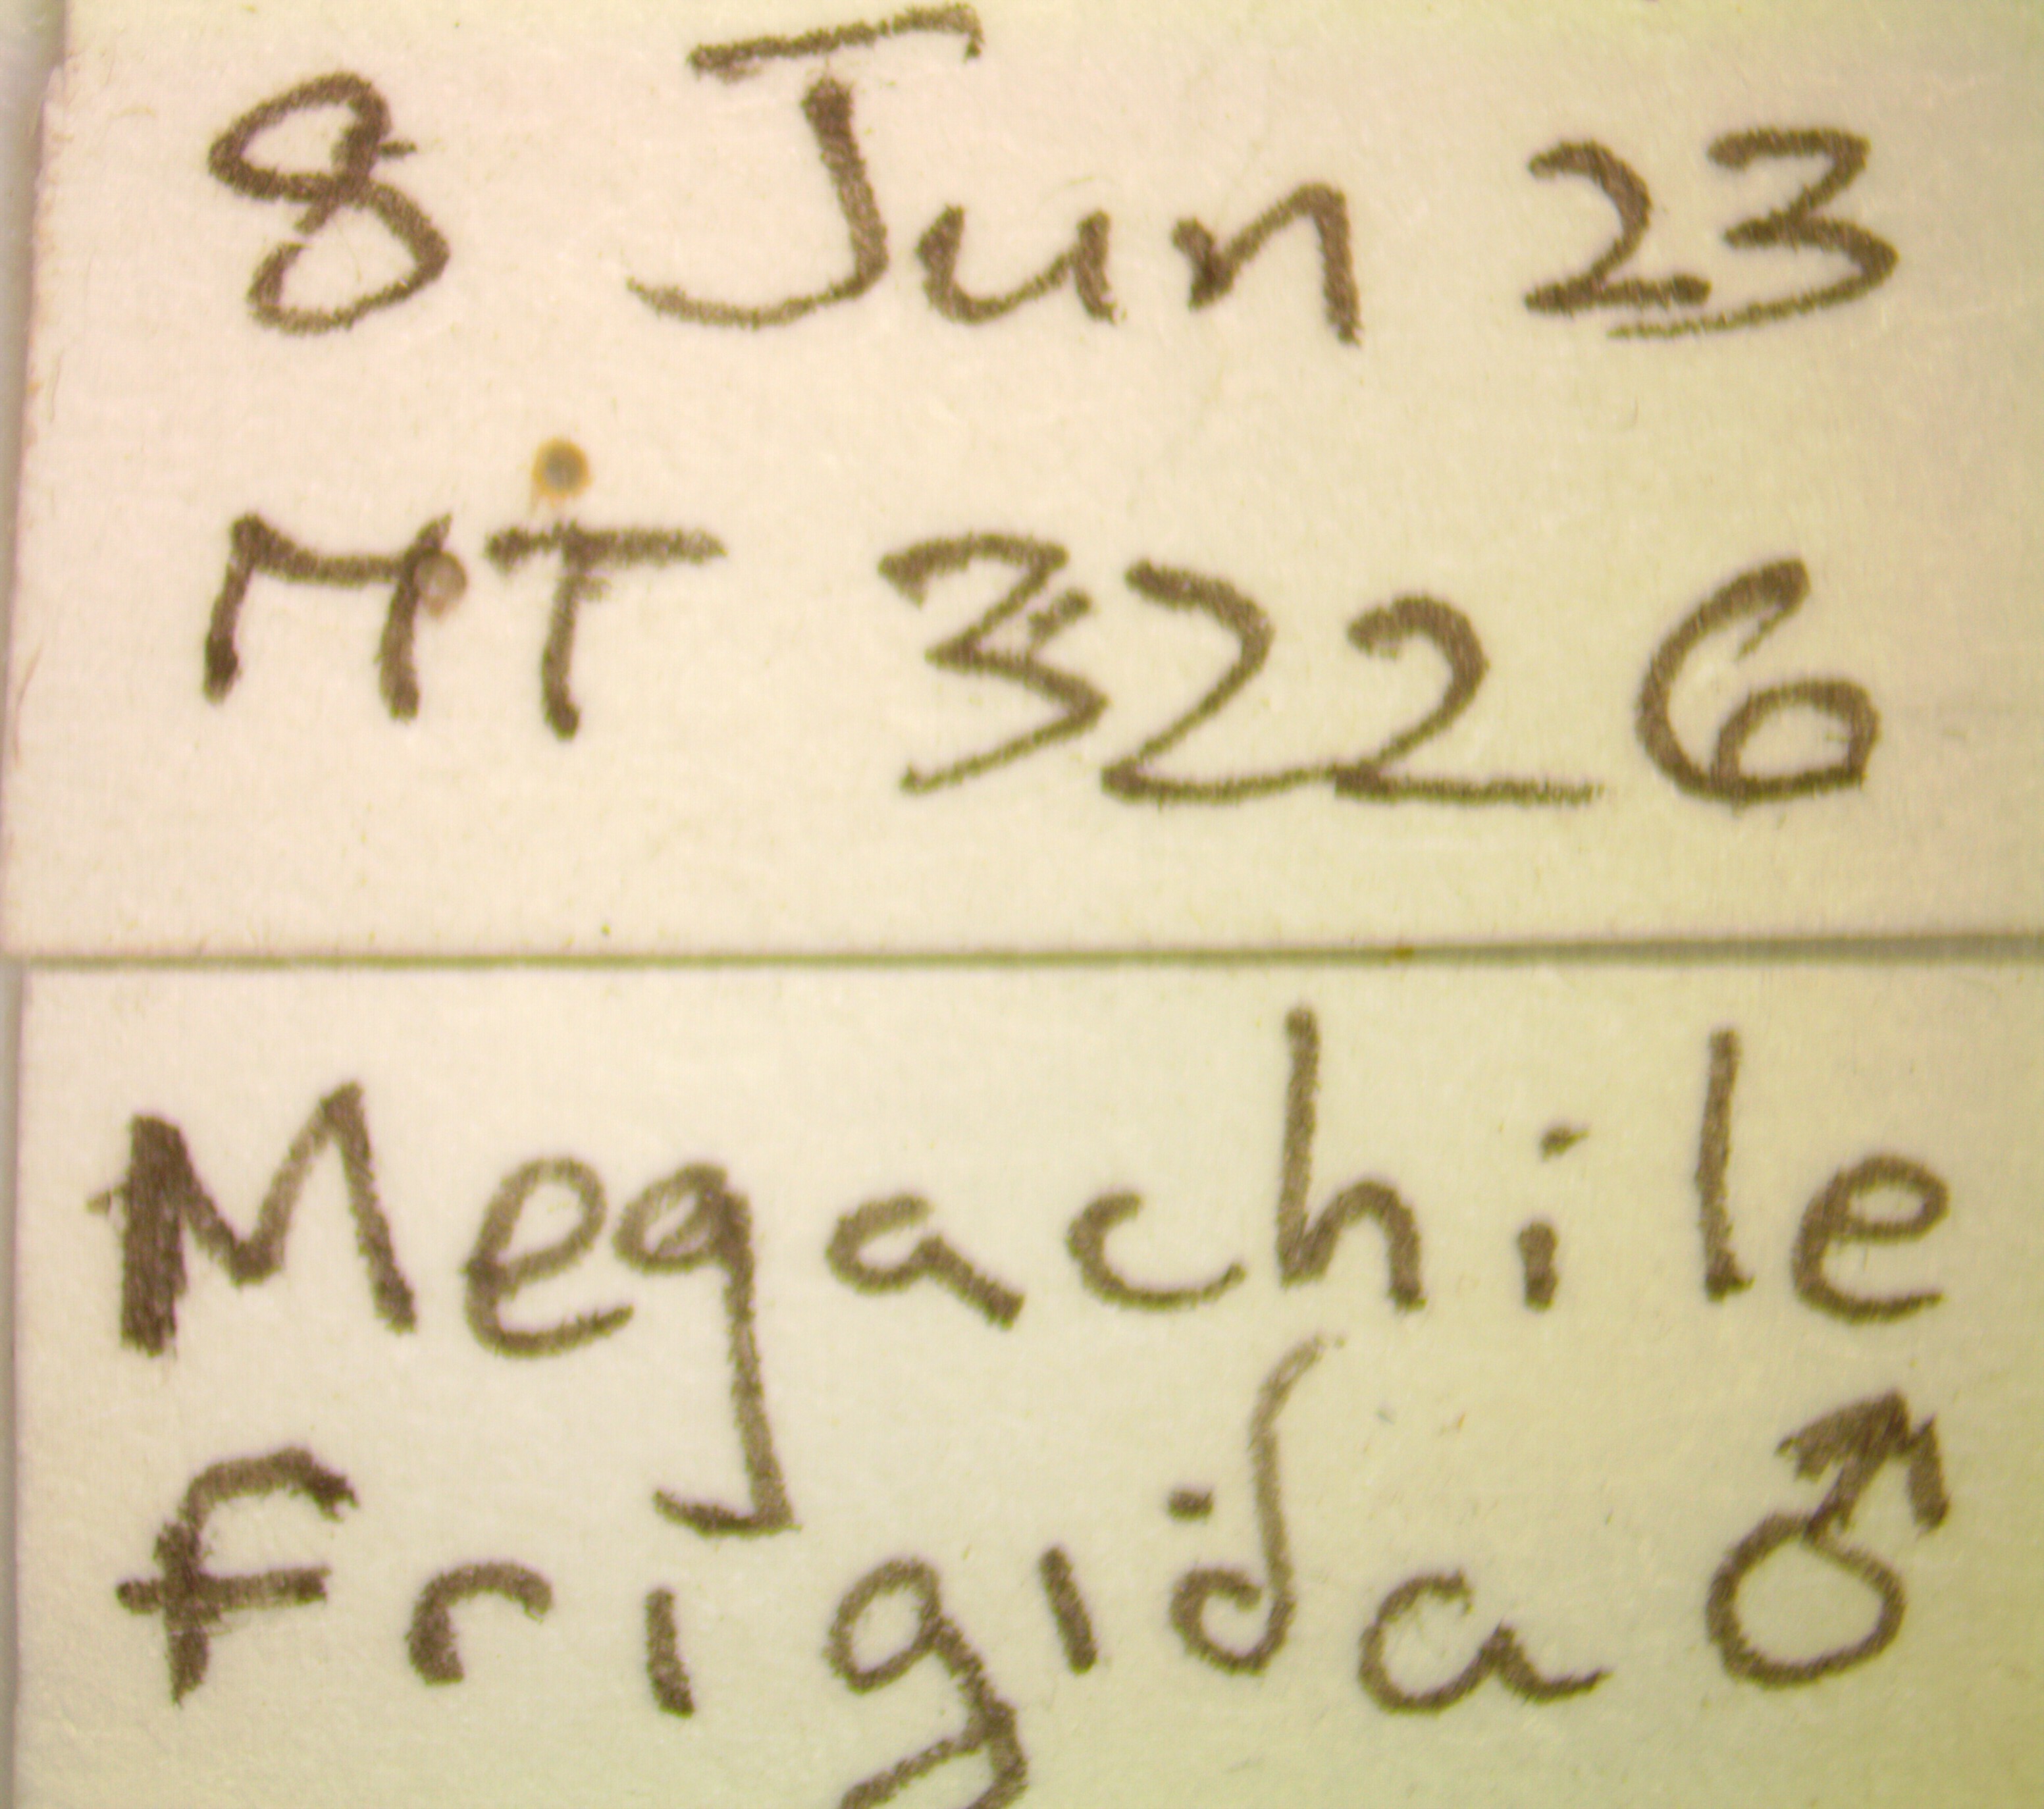 8 Jun 23
MT 3226
Megachile
frigida ♂